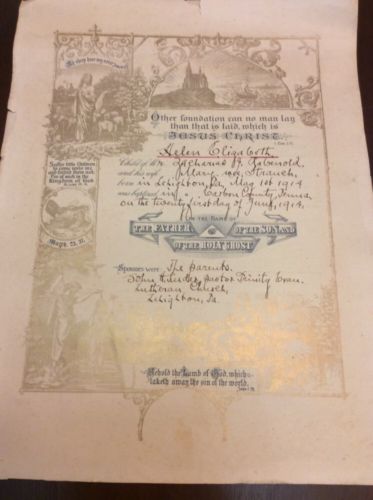 My sheep hear my voice
Other foundation can no man lay
than that is laid, which is
JESUS CHRIST.
Suffer little Children
to come unto me,
and forbid them not:
for of such is the
Kingdom of God.
Helen Elizabeth
Child of Mr. Zacharias H.
and his wife Mary née Strauch,
born in Lehighton, Pa, May 1st 1914
was baptized in Carbon County, Penna
on the twenty first day of June, 1914.
IN THE NAME OF
THE FATHER OF THE SON AND
OF THE HOLY GHOST
Math. 23, 37.
Sponsors were The parents.
John pastor Trinity Evan.
Lutheran Church,
Lehighton, Pa.
Behold the Lamb of God, which
taketh away the sin of the world.